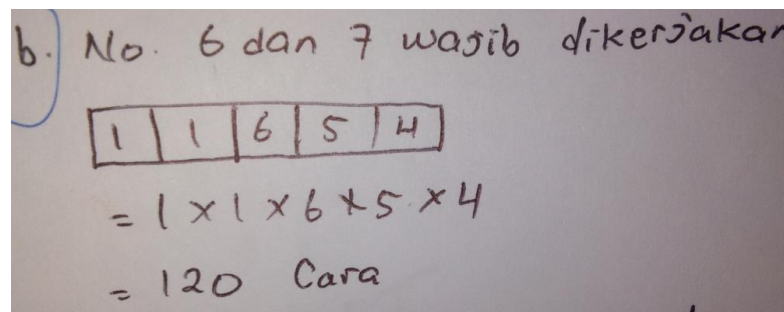 b. No. 6 dan 7 wajib dikerjakan
1 1 6 5 4
= 1 × 1 × 6 × 5 × 4
= 120 Cara